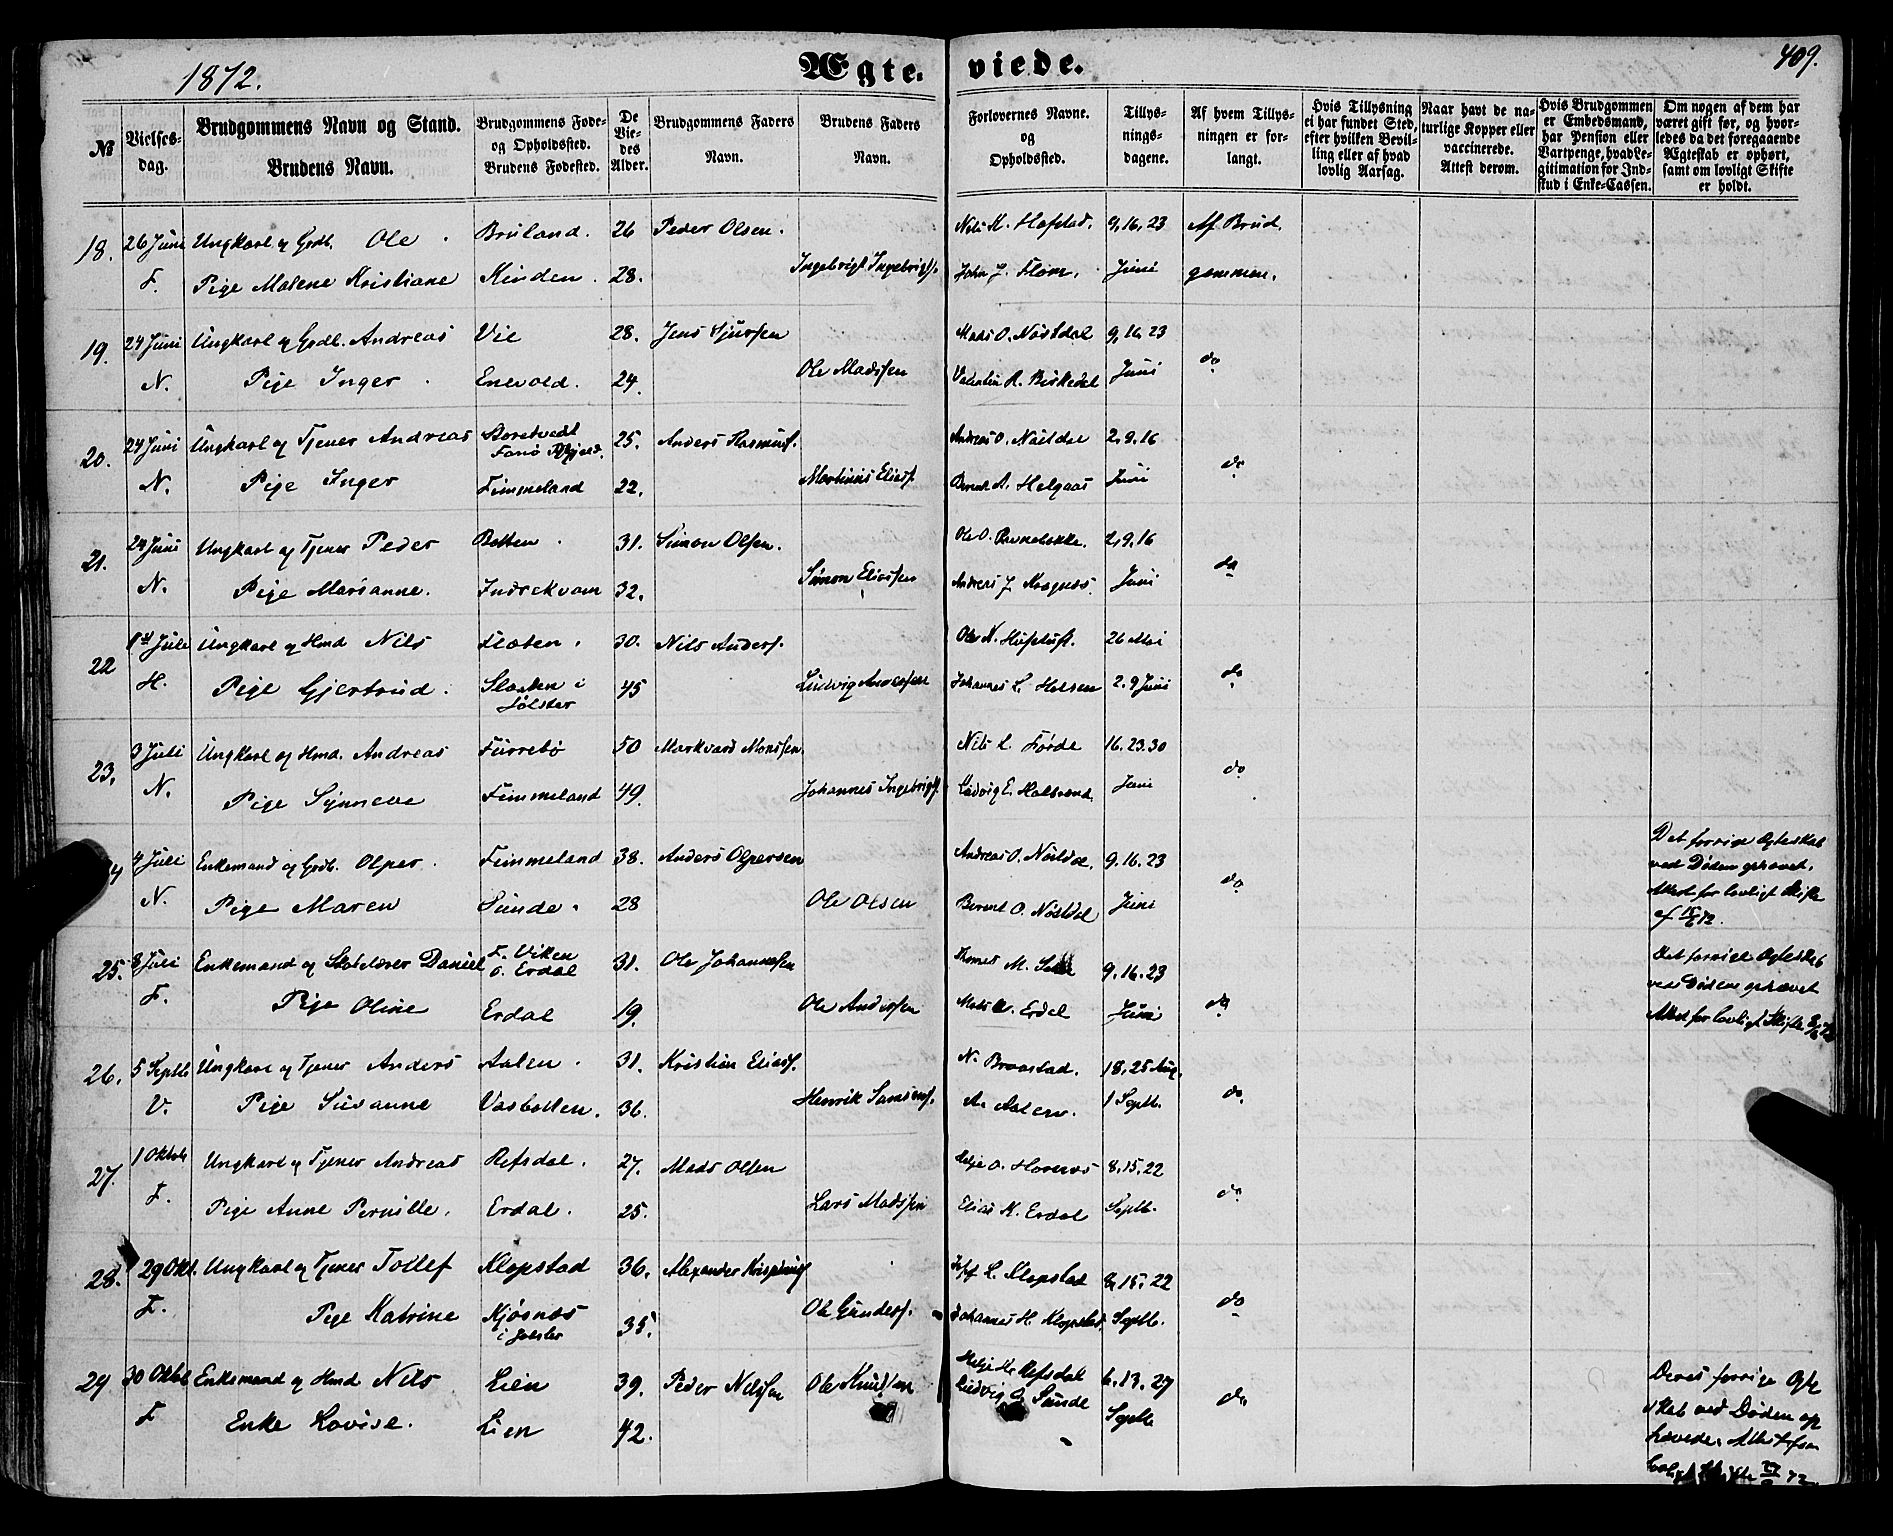 1872.
Ægteviede.
409.
No
Vielses-dag.
Brudgommens Navn og Stand.
Brudens Navn.
Brudgommens Føde- og Opholdssted.
Brudens Fødested.
De Viedes Alder.
Brudgommens Faders Navn.
Brudens Faders Navn.
Forlovernes Navne. og Opholdssted.
Tillysningsdagene.
Af hvem Tillysningen er forlangt.
Hvis Tillysning ei har fundet Sted, efter hvilken Bevilling eller af hvad lovlig Aarsag.
Naar havt de naturlige Kopper eller vaccinerede. Attest derom.
Hvis Brudgommen er Embedsmand, har Pension eller Vartpenge, hvad Legitimation for Indskud i Enke-Cassen.
Om nogen af dem har været gift før, og hvorledes da det foregaaende Ægteskab er ophørt, samt om lovligt Skifte er holdt.
18. 26 Juni Ungkarl og Grdb. Ole Bruland. 26 Peder Olsen. Nils K. Hafstad. 9, 16, 23 Af Brud
F. Pige Malene Kristiane Kinden. 28. Ingebrigt Ingebrigts. John J. Flom. Juni gommen.
19. 24 Juni Ungkarl og Grdb. Andreas Vie 28. Jens Sjursen Mads O. Nøstdal 9, 16, 23
N. Pige Inger Enevold. 24. Ole Madssen Valentin R. Birkedal Juni do
20. 24 Juni Ungkarl og Tjener Andreas Storetvedt 25. Anders Rasmuss. Andreas O. Nøstdal 2, 9, 16
N. Pige Inger Fimmeland 22. Martinus Eliess. Bernt A. Helgaas Juni do
21. 24 Juni Ungkarl og Tjener Peder Botten 31. Simon Olsen. Ole O. 2, 9, 16
N. Pige Marianne. Indrekvam 32. Simon Eliassen Andreas J. Juni do
22 1st Juli Ungkarl og Hmd Nils Flaten. 30. Nils Anders. Ole N. Hufstuft. 26 Mai
H. Pige Gjertrud. Slaatten i Jølster 45 Ludvig Anderssen Johannes L. Halsen 2. 9 Juni do
23. 3 Juli Ungkarl og Hmd. Andreas Furrebø 50 Markvard Monssen. Nils L. Førde 16. 23. 30
N. Pige Synneve Fimmeland 49. Johannes Ingebrigts. Ludvig E. Halbrend Juni do
4 Juli Enkemand og Grdb. Olper. Fimmeland 38. Anders Olpersen Andreas O. Nøstdal 9. 16. 23 Det forrige Ægteskab
N. Pige Maren Sunde. 28 Ole Olsen Bernt O. Nøstdal Juni do ved Døden ophævet. Attest for lovligt Skifte af
25. 8 Juli Enkemand og Skolelærer Daniel F. Viken o. Erdal 31. Ole Johannessen Thomas M. 9. 16. 23 Det forrige Ægteskab
F. Pige Oline Erdal 19. Ole Anderssen Mads A. Erdal Juni do ved Døden ophævet Attest for lovligt Skifte
26. 5 Septb Ungkarl og Tjener Anders Aalen. 31. Kristian Eliass. N. Braastad. 18, 25 Aug.
V. Pige Susanne Vasbotten. 36. Henrik Samsons. A. Aalen. 1 Septb. do
27. 1 Oktob Ungkarl og Tjener Andreas Refsdal. 27. Mads Olsen Helje O. Hovenæs 8, 15, 22
F. Pige Anne Pernille. Erdal. 25. Lars Madssen Elias K. Erdal Septb. do
28. 29 Okt. Ungkarl og Tjener Tollef Klopstad 36. Alexander L. Klopstad 8, 15, 22
F. Pige Katrine Kjøsnæs i Jølster 35. Ole Gunders. Johannes H. Klopstad. Septb. do
29 30 Oktb Enkemand og Hmd Nils Lien 39. Peder Nilssen Ole Knutsen Helje K. Refsdal 6. 13. 27 Deres forrige Ægte
F Enke Lovise. Lien 42. Ludvig O. Sunde Septb do skab ved Døden op hævede. Attest for